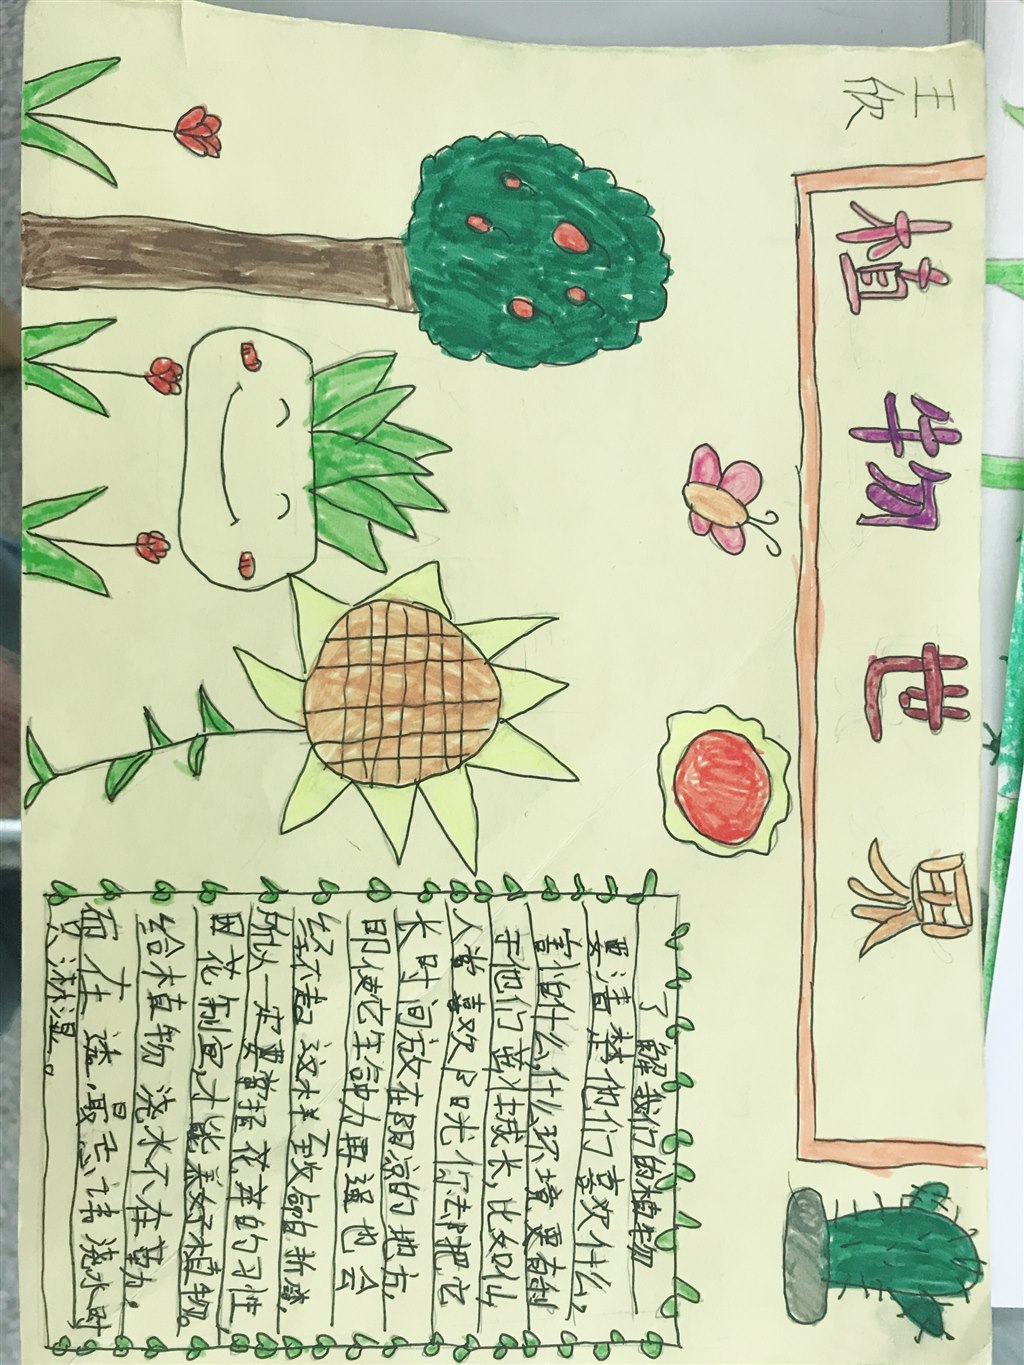 王欣
植物世界
了解我们的植物
要清楚他们喜欢什么。
害怕什么,什么环境更有利
于他们茁壮成长,比如仙
人掌喜欢阳光你却把它
长时间放在阴凉的地方。
即使它生命力再强也会
经不起这样致命的折磨。
所以一定要掌握花卉的习性
因花制宜,才能养好植物。
给植物浇水不在勤,
而在透,最忌讳浇水时
淋湿。